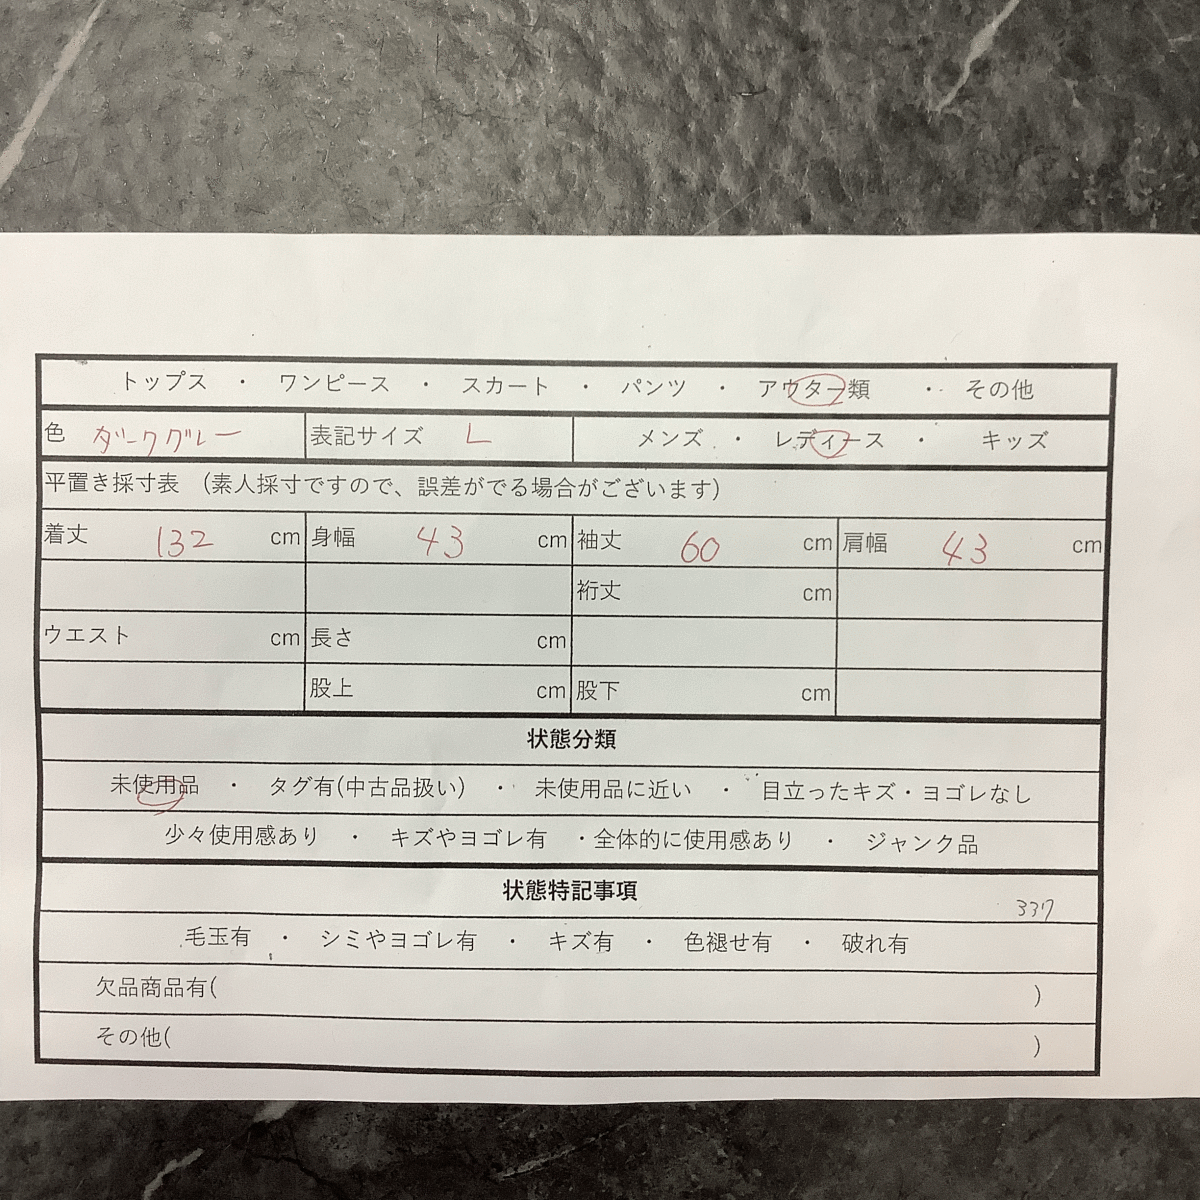 トップス ・ ワンピース ・ スカート ・ パンツ ・ アウター類 ・ その他
色 ダークグレー 表記サイズ L メンズ ・ レディース ・ キッズ
平置き採寸表 （素人採寸ですので、誤差がでる場合がございます）
着丈 132 cm 身幅 43 cm 袖丈 60 cm 肩幅 43 cm
裄丈 cm
ウエスト cm 長さ cm
股上 cm 股下 cm
状態分類
未使用品 ・ タグ有(中古品扱い) ・ 未使用品に近い ・ 目立ったキズ・ヨゴレなし
少々使用感あり ・ キズやヨゴレ有 ・全体的に使用感あり ・ ジャンク品
状態特記事項
337
毛玉有 ・ シミやヨゴレ有 ・ キズ有 ・ 色褪せ有 ・ 破れ有
欠品商品有( )
その他( )